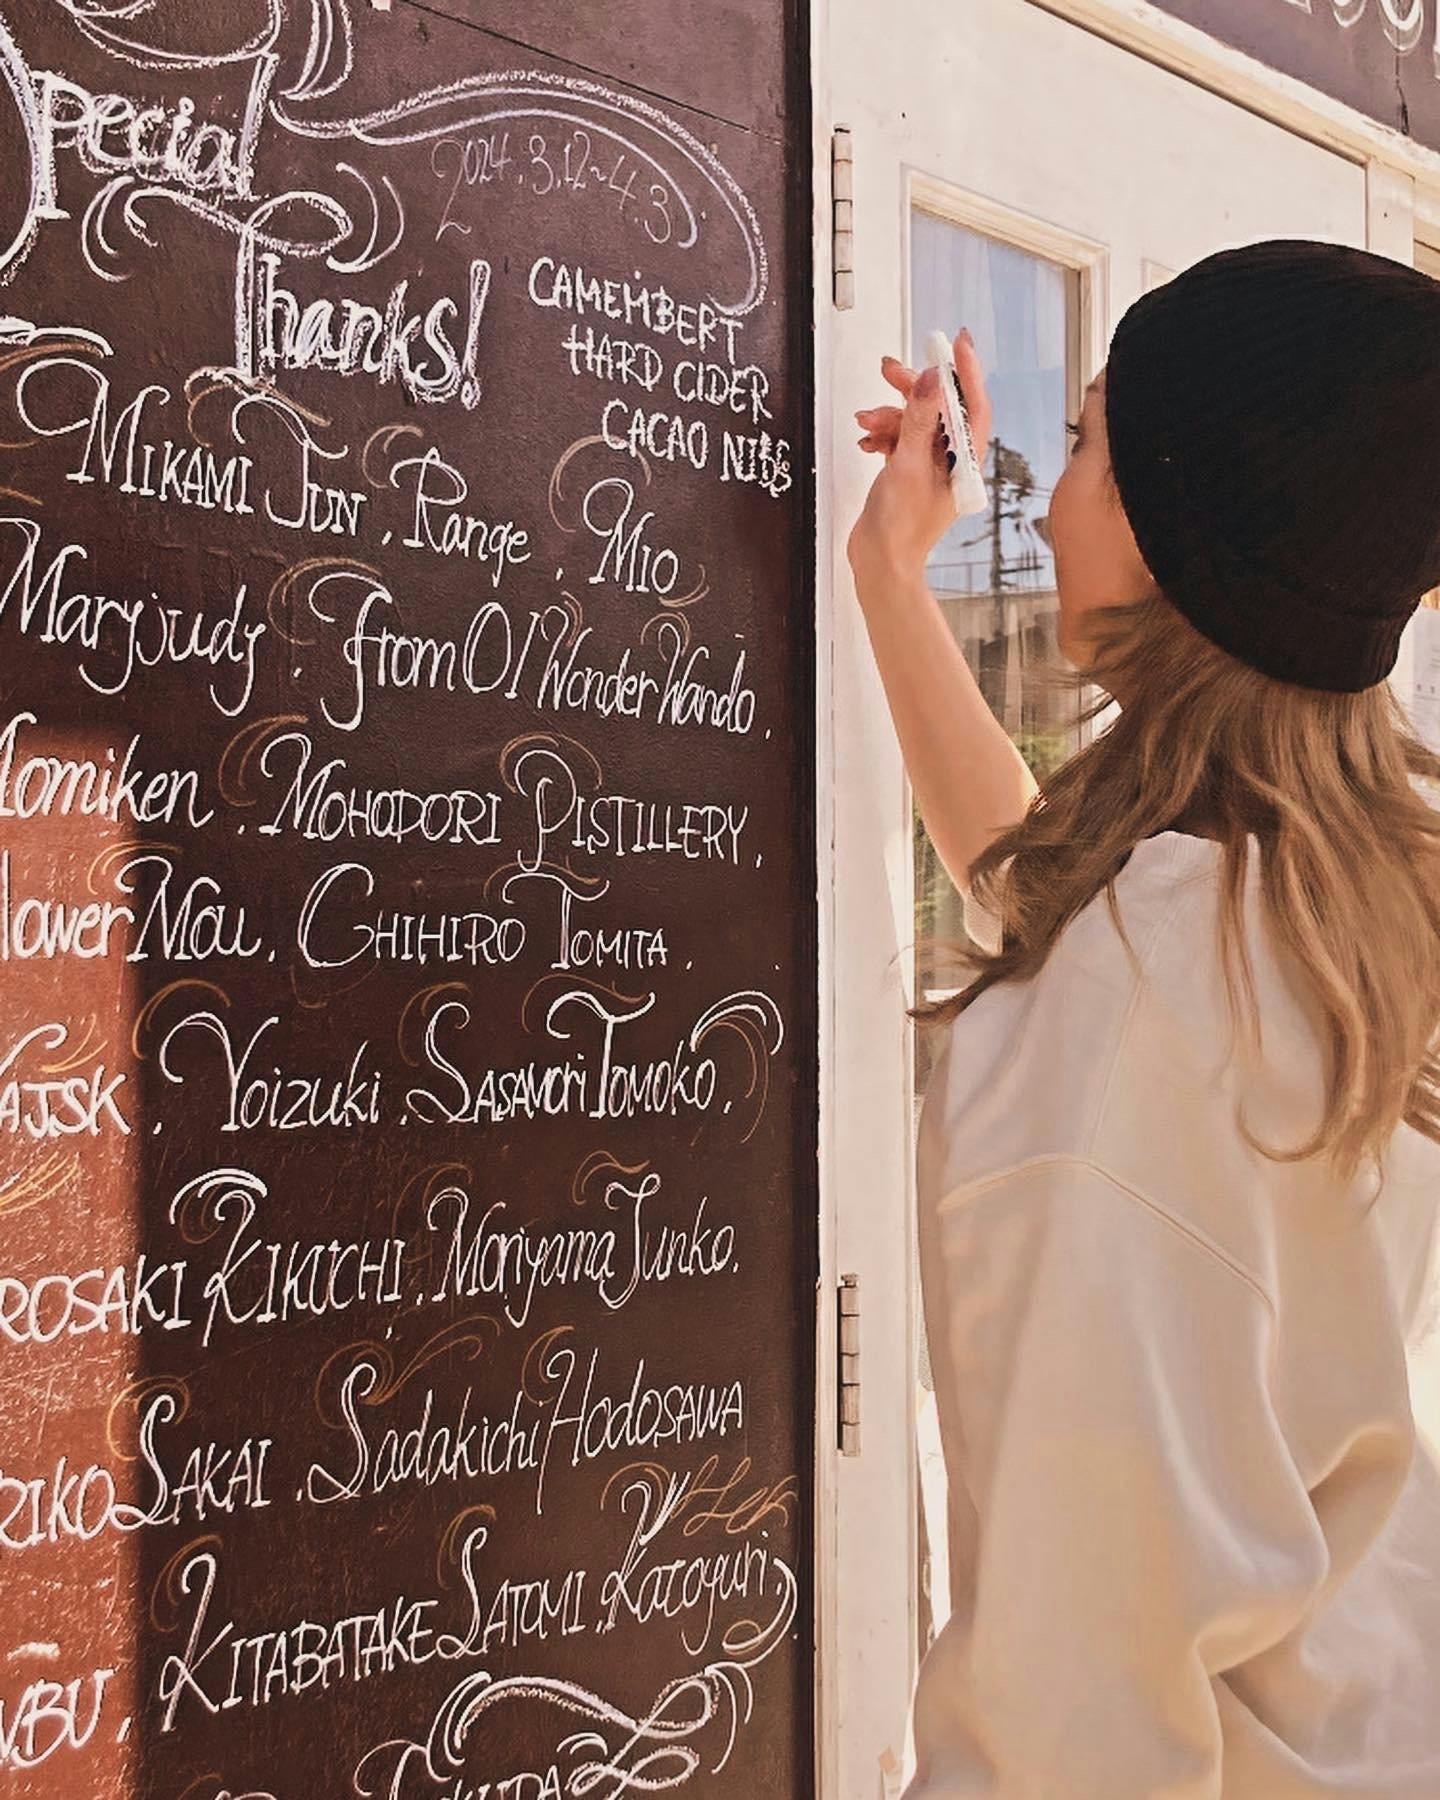 Special
2024.3.12~4.3
Thanks!
CAMEMBERT
HARD CIDER
CACAO NIBS
MIKAMI JUN, Range, MIO
Maryjudy, from 01 Wonder Wando,
Momiken, MOHODORI DISTILLERY,
lower Mou, CHIHIRO TOMITA,
AJSK, Yoizuki, SASAMORI TOMOKO,
ROSAKI KIKUCHI, Moriyama Junko,
RIKO SAKAI, Sadakichi HODOSAWA
KITABATAKE SATOMI, Katoyuri,
BU,